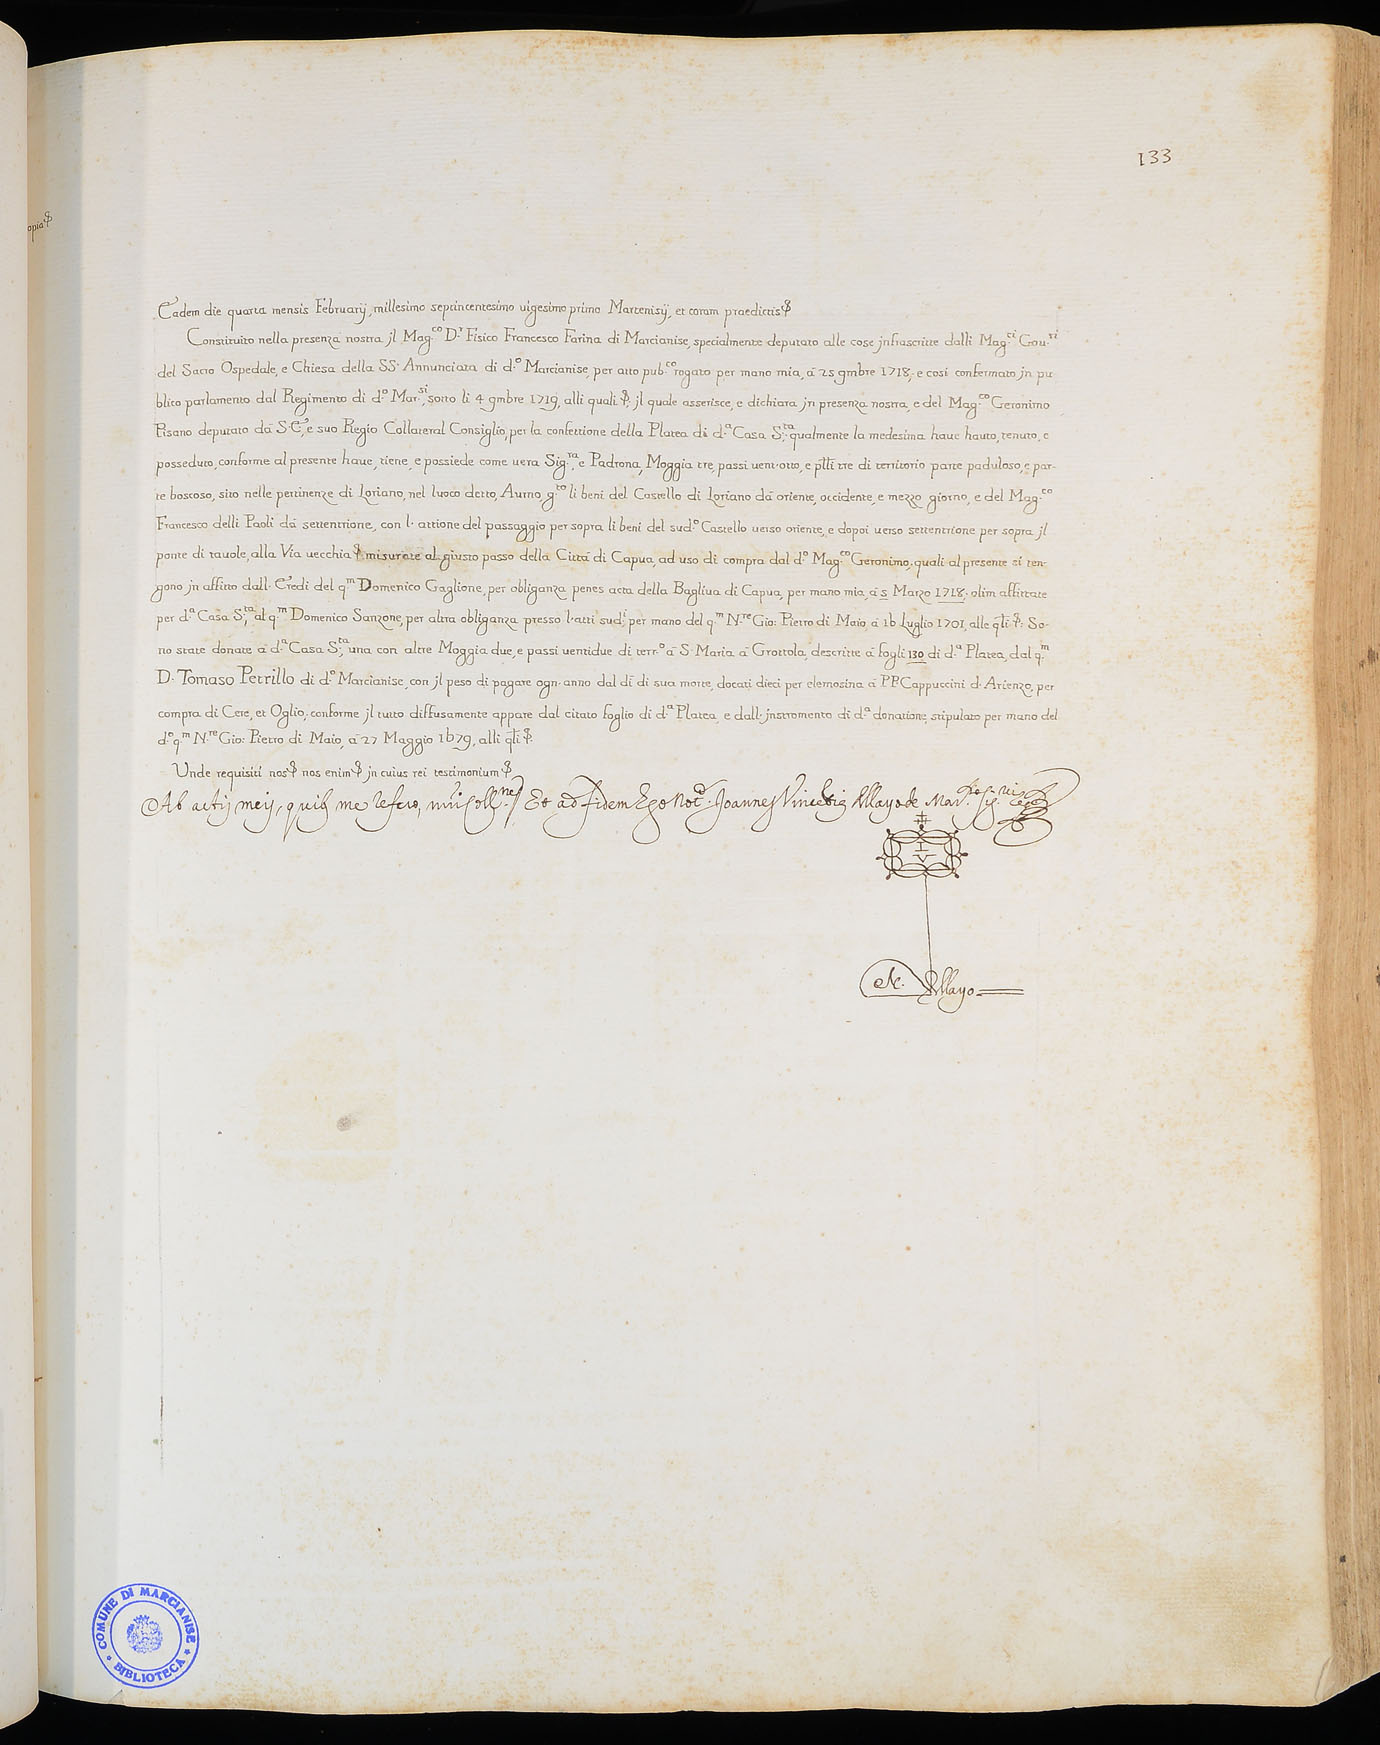 133
opia
Eadem die quarta mensis Februarij, millesimo septincentesimo uigesimo primo Martenisij, et coram praedictis
Constituito nella presenza nostra jl Mag.co D.r Fisico Francesco Farina di Marcianise, specialmente deputato alle cose jnfrascritte dalli Mag.ci Gou.ri
del Sacro Ospedale, e Chiesa della SS. Annunciata di d.o Marcianise, per atto pub.co rogato per mano mia, à 25 9mbre 1718, e così confermato jn pu
blico parlamento dal Regimento di d.o Mar.si, sotto li 4 9mbre 1719, alli quali; jl quale asserisce, e dichiara jn presenza nostra, e del Mag.co Geronimo
Pisano deputato da S.E., e suo Regio Collateral Consiglio, per la confettione della Platea di d.a Casa S.ta qualmente la medesima haue hauto, tenuto, e
posseduto, conforme al presente haue, tiene, e possiede come uera Sig.ra, e Padrona, Moggia tre, passi uent'otto, e ptti tre di territorio parte paduloso, e par-
te boscoso, sito nelle pertinenze di Loriano, nel luoco detto, Aurno, g.to li beni del Castello di Loriano da oriente, occidente, e mezzo giorno, e del Mag.co
Francesco delli Paoli dà settentrione, con l'attione del passaggio per sopra li beni del sud.o Castello uerso oriente, e dopoi uerso settentrione per sopra jl
ponte di tauole, alla Via uecchia misurate al giusto passo della Città di Capua, ad uso di compra dal d.o Mag.co Geronimo, quali al presente si ten-
gono jn affitto dall'Eredi del q.m Domenico Gaglione, per obliganza penes acta della Bagliua di Capua, per mano mia, à 5 Marzo 1718. olim affittate
per d.a Casa S.ta, al q.m Domenico Sanzone, per altra obliganza presso l'atti sud.i per mano del q.m N.re Gio: Pietro di Maio, à 16 Luglio 1701, alle qtli: So-
no state donate à d.a Casa S.ta, una con altre Moggia due, e passi uentidue di terr.o à S. Maria à Grottola, descritte à fogli 130 di d.a Platea, dal q.m
D. Tomaso Petrillo di d.o Marcianise, con jl peso di pagare ogn'anno dal dì di sua morte, docati dieci per elemosina à PP. Cappuccini d'Arienzo, per
compra di Cere, et Oglio, conforme jl tutto diffusamente appare dal citato foglio di d.a Platea, e dall'jnstromento di d.a donatione, stipulato per mano del
d.o q.m N.re Gio: Pietro di Maio, à 27 Maggio 1679, alli qtli
Unde requisiti nos nos enim jn cuius rei testimonium
Ab actis meis, quibus me refero, Et ad fidem Ego Not.s Joannes Vincentius Mayo de Mar.
I
V
N. Mayo
COMUNE DI MARCIANISE
BIBLIOTECA